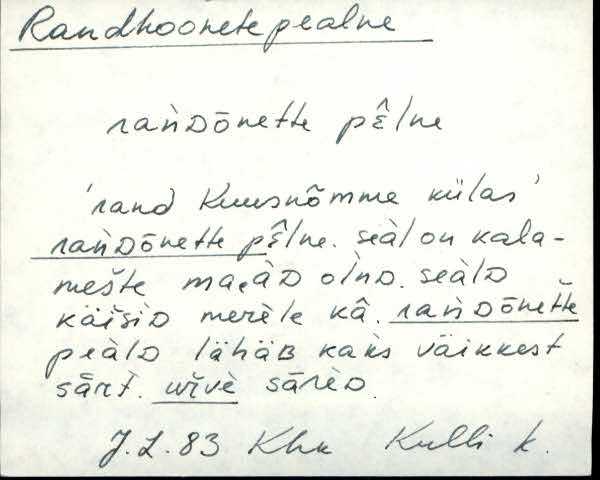 Randhoonete pealne
rańDōnette pε̑lne
'rand Kuusnõmme külas'
rańDōnette pε̑lne. seàl on kala-
mešte majàD olnD. seàlD
käišiD merèle kâ. rańDōnette
peàlD lähäB kaks väikkest
sārt. wīvè sārèD.
J.L. 83 Khk Kulli k.